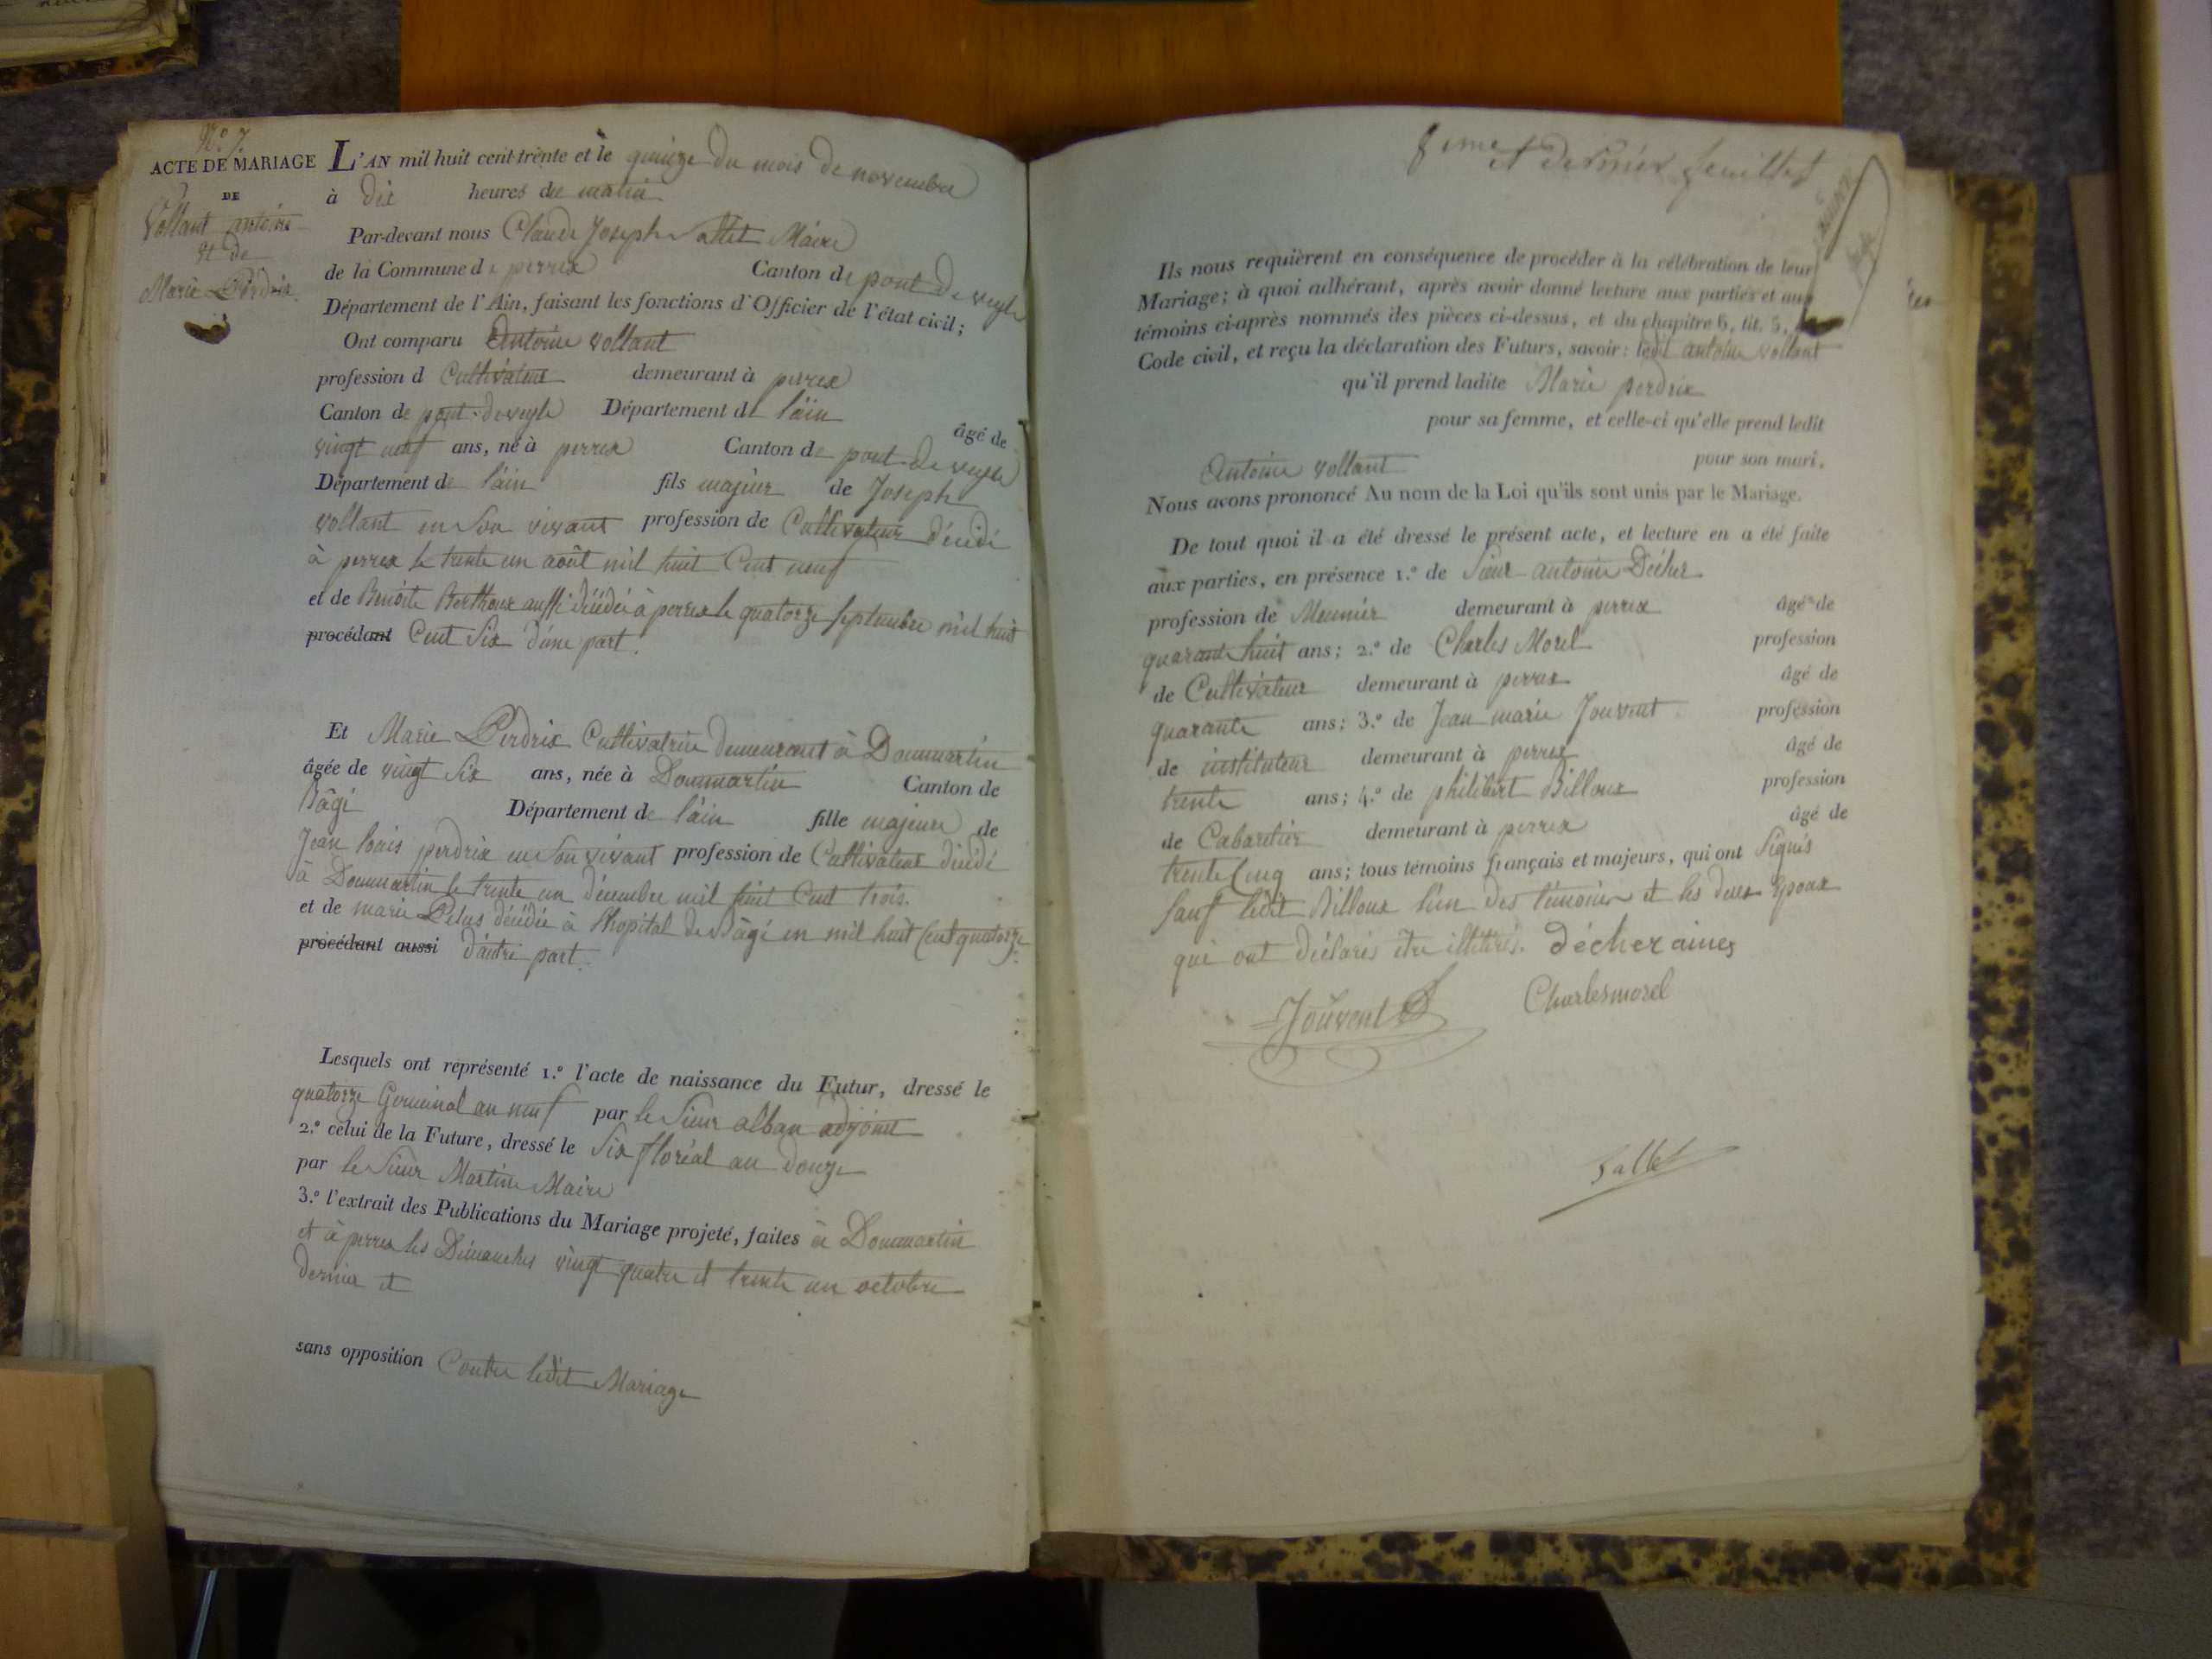 N.o 7.
ACTE DE MARIAGE
DE
Vollant antoine
et de
Marie Perdrix.
L'AN mil huit cent trente et le quinze du mois de novembre
à dix heures du matin
Par-devant nous Claude Joseph Maire
de la Commune de perrex Canton de pont de veyle
Département de l'Ain, faisant les fonctions d'Officier de l'état civil;
Ont comparu Antoine vollant
profession d Cultivateur demeurant à perrex
Canton de pont-de veyle Département de l'ain âgé de
vingt neuf ans, né à perrex Canton de pont-de veyle
Département de l'ain fils majeur de Joseph
vollant en son vivant profession de Cultivateur décédé
à perrex le trente un août mil huit Cent neuf
et de Benoite Berthoux aussi décédée à perrex le quatorze septembre mil huit
procédant Cent Six d'une part.
Et Marie Perdrix Cultivatrice demeurant à Dommartin
âgée de vingt Six ans, née à Dommartin Canton de
Bâgé Département de l'ain fille majeure de
Jean louis perdrix en son vivant profession de Cultivateur décédé
à Dommartin le trente un décembre mil huit Cent trois.
et de marie Pelus décédée à l'hopital de Bâgé en mil huit Cent quatorze
procédant aussi d'autre part.
Lesquels ont représenté 1.º l'acte de naissance du Futur, dressé le
quatorze Germinal an neuf par le Sieur alban adjoint
2.º celui de la Future, dressé le Six floréal an douze
par le Sieur Martine Maire
3.º l'extrait des Publications du Mariage projeté, faites à Dommartin
et à perrex les Dimanches vingt quatre et trente un octobre
dernier et
sans opposition Contre ledit Mariage
8eme et dernier feuillet
Ils nous requièrent en conséquence de procéder à la célébration de leur
Mariage; à quoi adhérant, après avoir donné lecture aux parties et aux
témoins ci-après nommés des pièces ci-dessus, et du chapitre 6, tit. 5,
Code civil, et reçu la déclaration des Futurs, savoir: ledit antoine vollant
qu'il prend ladite Marie perdrix
pour sa femme, et celle-ci qu'elle prend ledit
Antoine vollant pour son mari,
Nous avons prononcé Au nom de la Loi qu'ils sont unis par le Mariage.
De tout quoi il a été dressé le présent acte, et lecture en a été faite
aux parties, en présence 1.º de Sieur antoine Décher
profession de Meunier demeurant à perrex âgé de
quarante huit ans; 2.º de Charles Morel profession
de Cultivateur demeurant à perrex âgé de
quarante ans; 3.º de Jean marie Jouvent profession
de instituteur demeurant à perrex âgé de
trente ans; 4.º de philibert Billoux profession
de Cabaretier demeurant à perrex âgé de
trente Cinq ans; tous témoins français et majeurs, qui ont Signés
sauf ledit Billoux l'un des témoins et les deux Epoux
qui ont déclarés être illitérés. décher ainez
Jouvent Charlesmorel